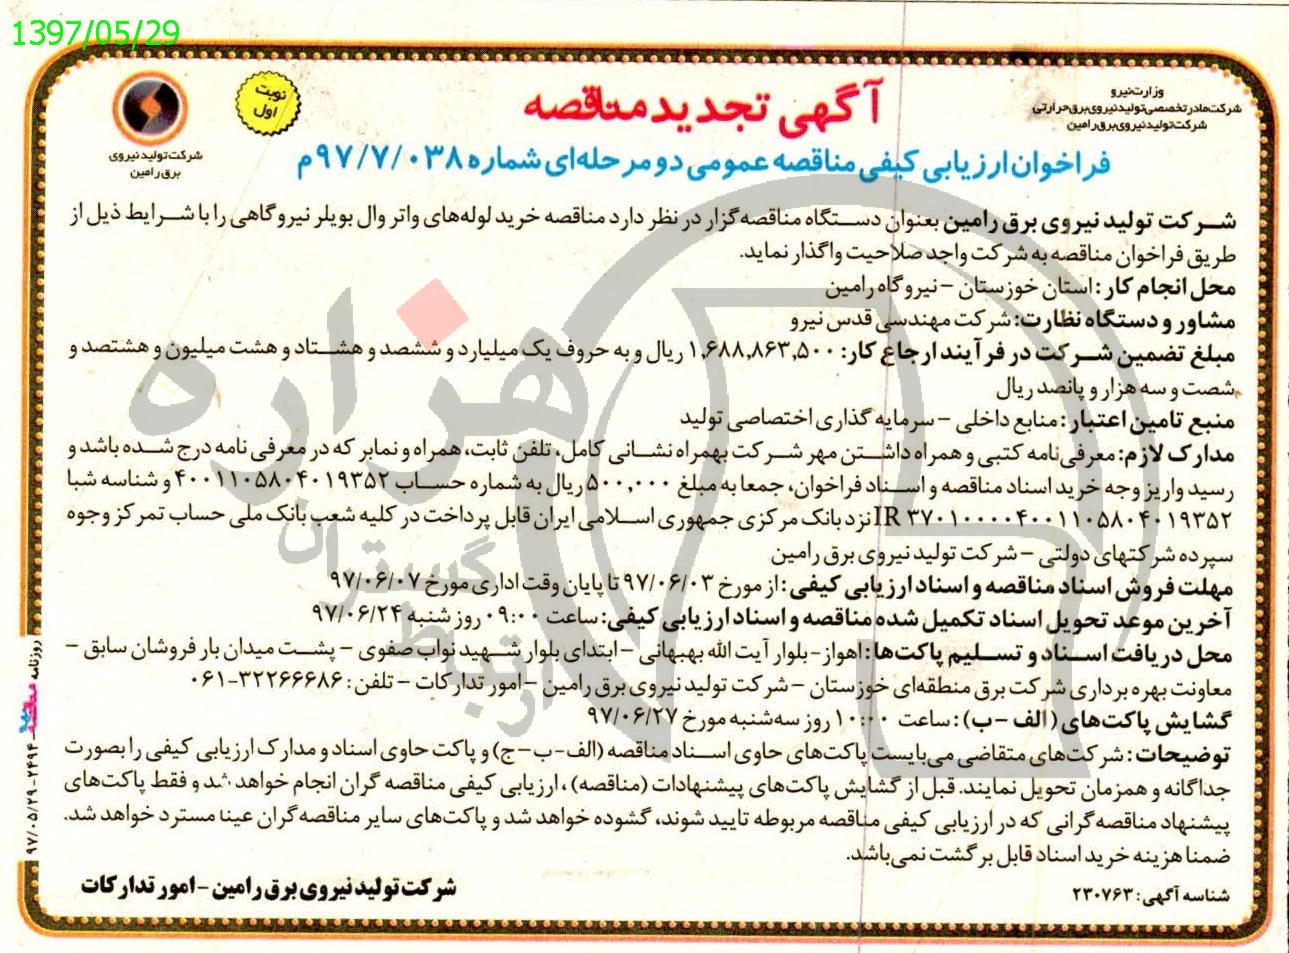 1397/05/29
وزارت نیرو
شرکت مادر تخصصی تولید نیروی برق حرارتی
شرکت تولید نیروی برق رامین
آگهی تجدید مناقصه
نوبت
اول
شرکت تولید نیروی
برق رامین
فراخوان ارزیابی کیفی مناقصه عمومی دو مرحله‌ای شماره ۹۷/۷/۰۳۸م
شرکت تولید نیروی برق رامین بعنوان دستگاه مناقصه گزار در نظر دارد مناقصه خرید لوله‌های واتر وال بویلر نیروگاهی را با شرایط ذیل از
طریق فراخوان مناقصه به شرکت واجد صلاحیت واگذار نماید.
محل انجام کار: استان خوزستان - نیروگاه رامین
مشاور و دستگاه نظارت: شرکت مهندسی قدس نیرو
مبلغ تضمین شرکت در فرآیند ارجاع کار: ۱,۶۸۸,۸۶۳,۵۰۰ ریال و به حروف یک میلیارد و ششصد و هشتاد و هشت میلیون و هشتصد و
شصت و سه هزار و پانصد ریال
منبع تامین اعتبار: منابع داخلی - سرمایه گذاری اختصاصی تولید
مدارک لازم: معرفی‌نامه کتبی و همراه داشتن مهر شرکت بهمراه نشانی کامل، تلفن ثابت، همراه و نمابر که در معرفی نامه درج شده باشد و
رسید واریز وجه خرید اسناد مناقصه و اسناد فراخوان، جمعا به مبلغ ۵۰۰,۰۰۰ ریال به شماره حساب ۴۰۰۱۱۰۵۸۰۴۰۱۹۳۵۲ و شناسه شبا
IR ۳۷۰۱۰۰۰۰۴۰۰۱۱۰۵۸۰۴۰۱۹۳۵۲ نزد بانک مرکزی جمهوری اسلامی ایران قابل پرداخت در کلیه شعب بانک ملی حساب تمرکز وجوه
سپرده شرکتهای دولتی - شرکت تولید نیروی برق رامین
مهلت فروش اسناد مناقصه و اسناد ارزیابی کیفی: از مورخ ۹۷/۰۶/۰۳ تا پایان وقت اداری مورخ ۹۷/۰۶/۰۷
آخرین موعد تحویل اسناد تکمیل شده مناقصه و اسناد ارزیابی کیفی: ساعت ۰۹:۰۰ روز شنبه ۹۷/۰۶/۲۴
محل دریافت اسناد و تسلیم پاکت‌ها: اهواز- بلوار آیت الله بهبهانی - ابتدای بلوار شهید نواب صفوی - پشت میدان بار فروشان سابق -
معاونت بهره برداری شرکت برق منطقه‌ای خوزستان - شرکت تولید نیروی برق رامین - امور تدارکات - تلفن: ۳۲۲۶۶۶۸۶-۰۶۱
گشایش پاکت‌های (الف - ب): ساعت ۱۰:۰۰ روز سه‌شنبه مورخ ۹۷/۰۶/۲۷
توضیحات: شرکت‌های متقاضی می‌بایست پاکت‌های حاوی اسناد مناقصه (الف-ب-ج) و پاکت حاوی اسناد و مدارک ارزیابی کیفی را بصورت
جداگانه و همزمان تحویل نمایند. قبل از گشایش پاکت‌های پیشنهادات (مناقصه)، ارزیابی کیفی مناقصه گران انجام خواهد شد و فقط پاکت‌های
پیشنهاد مناقصه‌گرانی که در ارزیابی کیفی مناقصه مربوطه تایید شوند، گشوده خواهد شد و پاکت‌های سایر مناقصه‌گران عینا مسترد خواهد شد.
ضمنا هزینه خرید اسناد قابل برگشت نمی‌باشد.
شناسه آگهی: ۲۳۰۷۶۳
شرکت تولید نیروی برق رامین - امور تدارکات
روزنامه مناقصه - ۲۴۹۴ - ۹۷/۰۵/۲۹
هزاره
گستران
ارتباط